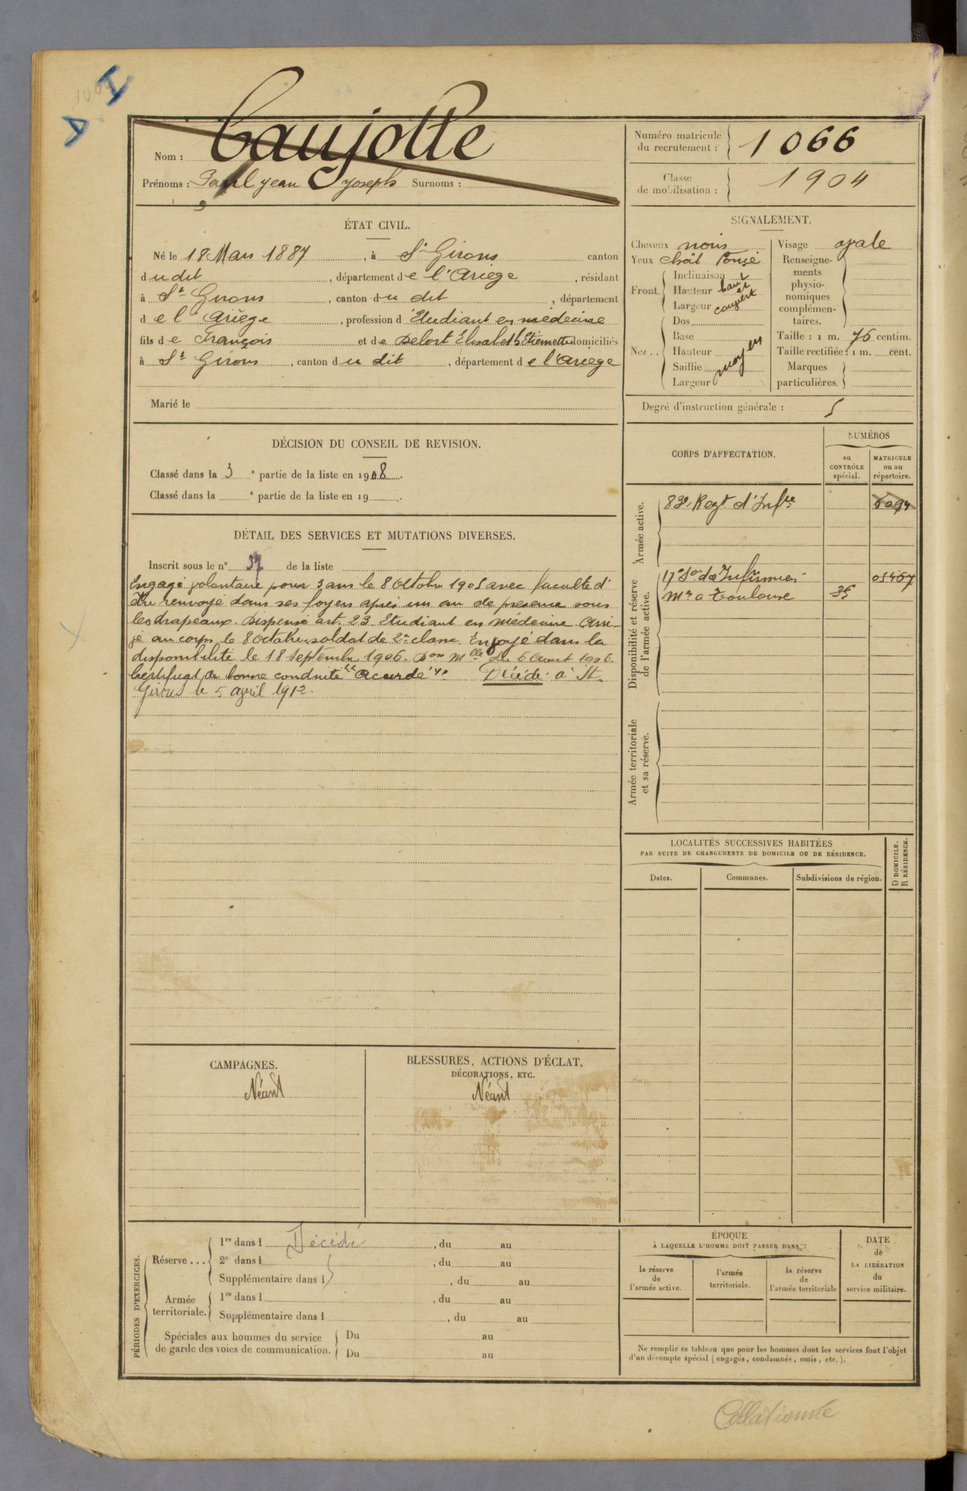 1066
Nom : Caujolle
Prénoms : Paul Jean Joseph Surnoms :
Numéro matricule du recrutement : 1066
Classe de mobilisation : 1904
ÉTAT CIVIL.
Né le 18 Mars 1887, à St Girons canton
dudit, département de l'Ariège, résidant
à St Girons, canton du dit, département
de l'Ariège, profession d'Etudiant en médecine
fils de François et de Delort Elisabeth Etiennette domiciliés
à St Girons, canton du dit, département de l'Ariège
Marié le
SIGNALEMENT.
Cheveux noirs
Yeux chât foncé
Front. Inclinaison
Hauteur haut
Largeur et couvert
Nez . . Dos
Base
Hauteur moyen
Saillie
Largeur
Visage ovale
Renseignements physionomiques complémentaires.
Taille : 1 m. 76 centim.
Taille rectifiée : 1 m. cent.
Marques particulières.
Degré d'instruction générale : 5
DÉCISION DU CONSEIL DE REVISION.
Classé dans la 3e partie de la liste en 1908.
Classé dans la e partie de la liste en 19 .
DÉTAIL DES SERVICES ET MUTATIONS DIVERSES.
Inscrit sous le n° 37 de la liste
Engagé volontaire pour 3 ans le 8 Octobre 1905 avec faculté d'
être renvoyé dans ses foyers après un an de présence sous
les drapeaux. Dispensé art. 23 Etudiant en médecine. Arri-
vé au corps le 8 Octobre soldat de 2e classe. Envoyé dans la
disponibilité le 18 Septembre 1906. Don mlle du 6 Aout 1906.
Certificat de bonne conduite accordé. Décédé à St
Girons le 5 avril 1912.
CORPS D'AFFECTATION.
NUMÉROS
au CONTRÔLE spécial.
MATRICULE ou au répertoire.
Armée active.
83e Regt d'Infie
Disponibilité et réserve de l'armée active.
17e Son des Infirmiers 05467
Mre à Toulouse 35
Armée territoriale et sa réserve.
LOCALITÉS SUCCESSIVES HABITÉES
PAR SUITE DE CHANGEMENTS DE DOMICILE OU DE RÉSIDENCE.
Dates. Communes. Subdivisions de région. D DOMICILE. R RÉSIDENCE.
CAMPAGNES.
Néant
BLESSURES, ACTIONS D'ÉCLAT,
DÉCORATIONS, ETC.
Néant
PÉRIODES D'EXERCICES.
Réserve . . . 1re dans l Décédé, du au
2e dans l , du au
Supplémentaire dans l , du au
Armée territoriale. 1re dans l , du au
Supplémentaire dans l , du au
Spéciales aux hommes du service de garde des voies de communication. Du au
Du au
ÉPOQUE
À LAQUELLE L'HOMME DOIT PASSER DANS :
la réserve de l'armée active. l'armée territoriale. la réserve de l'armée territoriale
DATE de LA LIBÉRATION du service militaire.
Ne remplir ce tableau que pour les hommes dont les services font l'objet
d'un décompte spécial (engagés, condamnés, omis, etc.).
Collationné